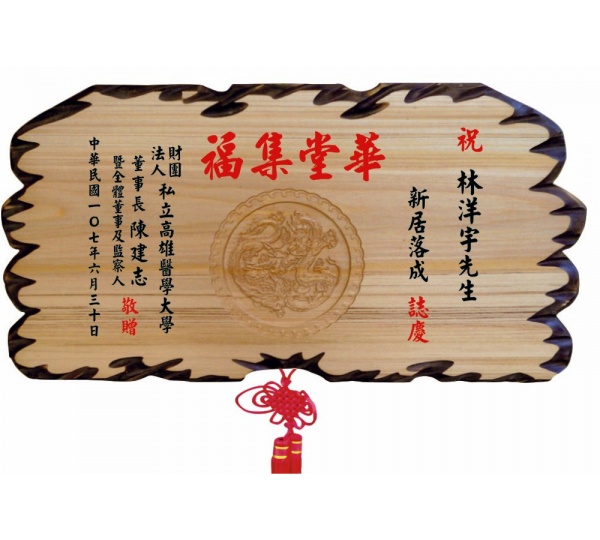 祝
林洋宇先生
新居落成
誌慶
華堂集福
財團法人 私立高雄醫學大學
董事長 陳建志
暨全體董事及監察人
敬贈
中華民國一〇七年六月三十日